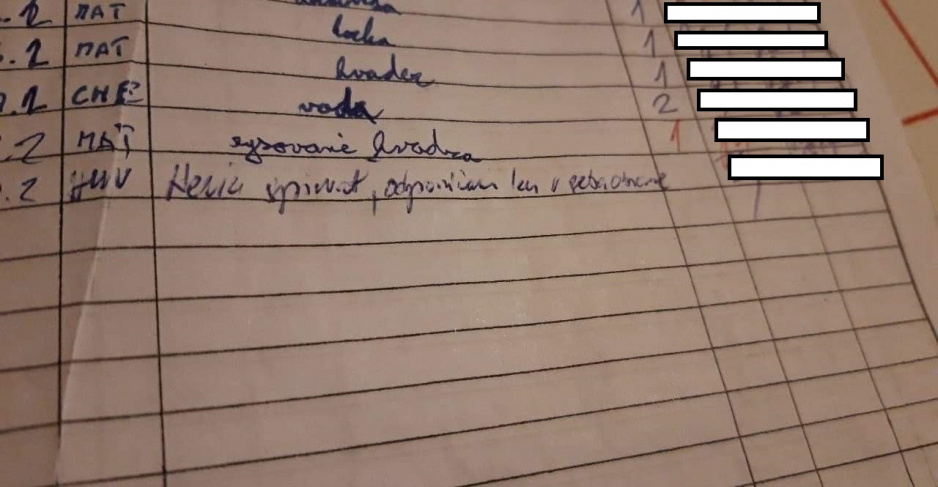 .2 MAT 1
.1 MAT kocka 1
MAT kváder 1
.1 CHE voda 2
.2 MAT rysovanie kvádra 1
.2 HUV Nevie spievať, odporúčam len v